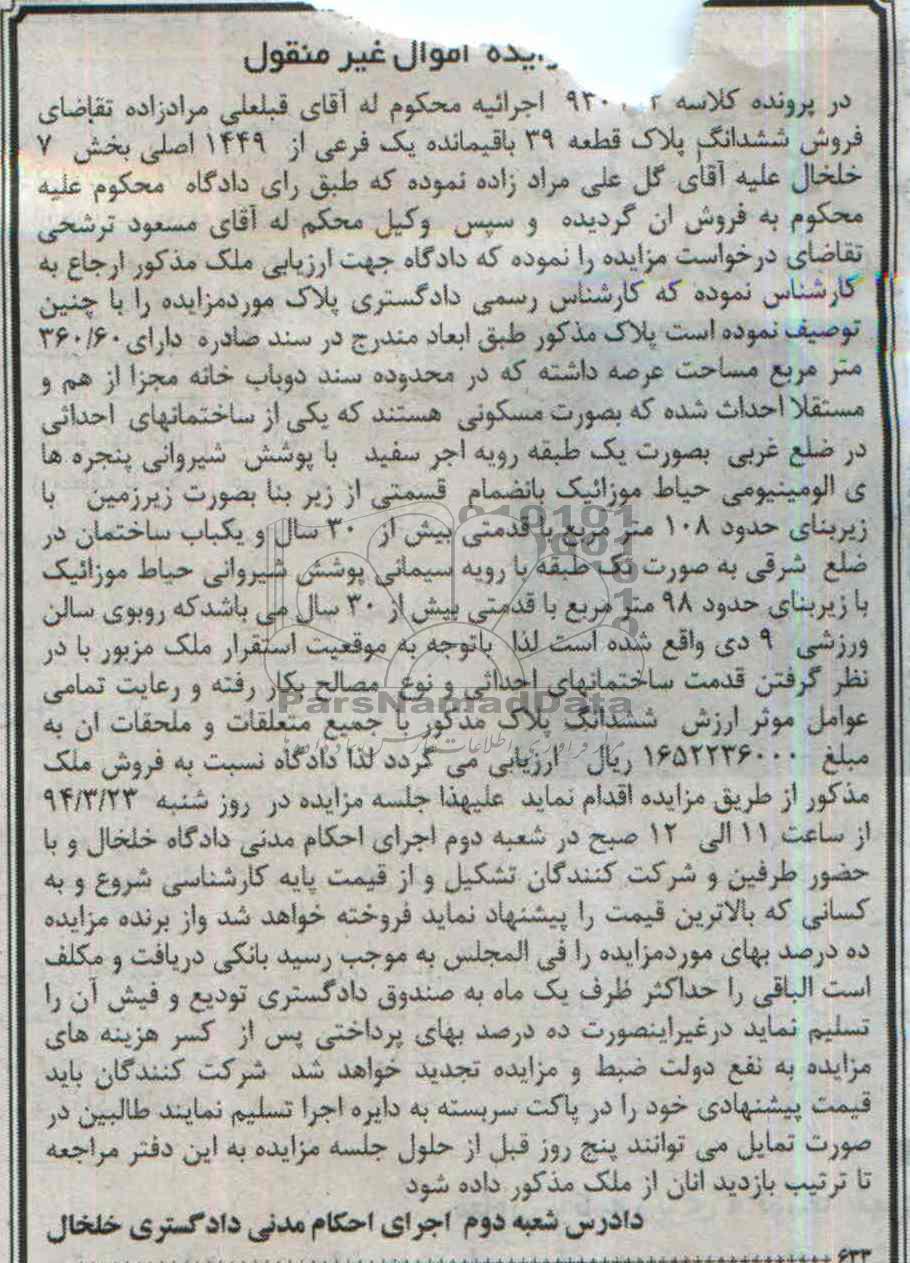 اموال غیر منقول
در پرونده کلاسه اجرائیه محکوم له آقای قبلعلی مرادزاده تقاضای
فروش ششدانگ پلاک قطعه ۳۹ باقیمانده یک فرعی از ۱۴۴۹ اصلی بخش ۷
خلخال علیه آقای گل علی مراد زاده نموده که طبق رای دادگاه محکوم علیه
محکوم به فروش ان گردیده و سپس وکیل محکم له آقای مسعود ترشحی
تقاضای درخواست مزایده را نموده که دادگاه جهت ارزیابی ملک مذکور ارجاع به
کارشناس نموده که کارشناس رسمی دادگستری پلاک موردمزایده را با چنین
توصیف نموده است پلاک مذکور طبق ابعاد مندرج در سند صادره دارای ۳۶۰/۶۰
متر مربع مساحت عرصه داشته که در محدوده سند دوباب خانه مجزا از هم و
مستقلا احداث شده که بصورت مسکونی هستند که یکی از ساختمانهای احداثی
در ضلع غربی بصورت یک طبقه رویه اجر سفید با پوشش شیروانی پنجره ها
ی الومینیومی حیاط موزائیک بانضمام قسمتی از زیر بنا بصورت زیرزمین با
زیربنای حدود ۱۰۸ متر مربع با قدمتی بیش از ۳۰ سال و یکباب ساختمان در
ضلع شرقی به صورت تک طبقه با رویه سیمانی پوشش شیروانی حیاط موزائیک
با زیربنای حدود ۹۸ متر مربع با قدمتی بیش از ۳۰ سال می باشدکه روبوی سالن
ورزشی ۹ دی واقع شده است لذا باتوجه به موقعیت استقرار ملک مزبور با در
نظر گرفتن قدمت ساختمانهای احداثی و نوع مصالح بکار رفته و رعایت تمامی
ParsNamadData
عوامل موثر ارزش ششدانگ پلاک مذکور با جمیع متعلقات و ملحقات ان به
مبلغ ۱۶۵۲۲۳۶۰۰۰ ریال ارزیابی می گردد لذا دادگاه نسبت به فروش ملک
مذکور از طریق مزایده اقدام نماید علیهذا جلسه مزایده در روز شنبه ۹۴/۳/۲۳
از ساعت ۱۱ الی ۱۲ صبح در شعبه دوم اجرای احکام مدنی دادگاه خلخال و با
حضور طرفین و شرکت کنندگان تشکیل و از قیمت پایه کارشناسی شروع و به
کسانی که بالاترین قیمت را پیشنهاد نماید فروخته خواهد شد واز برنده مزایده
ده درصد بهای موردمزایده را فی المجلس به موجب رسید بانکی دریافت و مکلف
است الباقی را حداکثر ظرف یک ماه به صندوق دادگستری تودیع و فیش آن را
تسلیم نماید درغیراینصورت ده درصد بهای پرداختی پس از کسر هزینه های
مزایده به نفع دولت ضبط و مزایده تجدید خواهد شد شرکت کنندگان باید
قیمت پیشنهادی خود را در پاکت سربسته به دایره اجرا تسلیم نمایند طالبین در
صورت تمایل می توانند پنج روز قبل از حلول جلسه مزایده به این دفتر مراجعه
تا ترتیب بازدید انان از ملک مذکور داده شود
دادرس شعبه دوم اجرای احکام مدنی دادگستری خلخال
۶۳۳